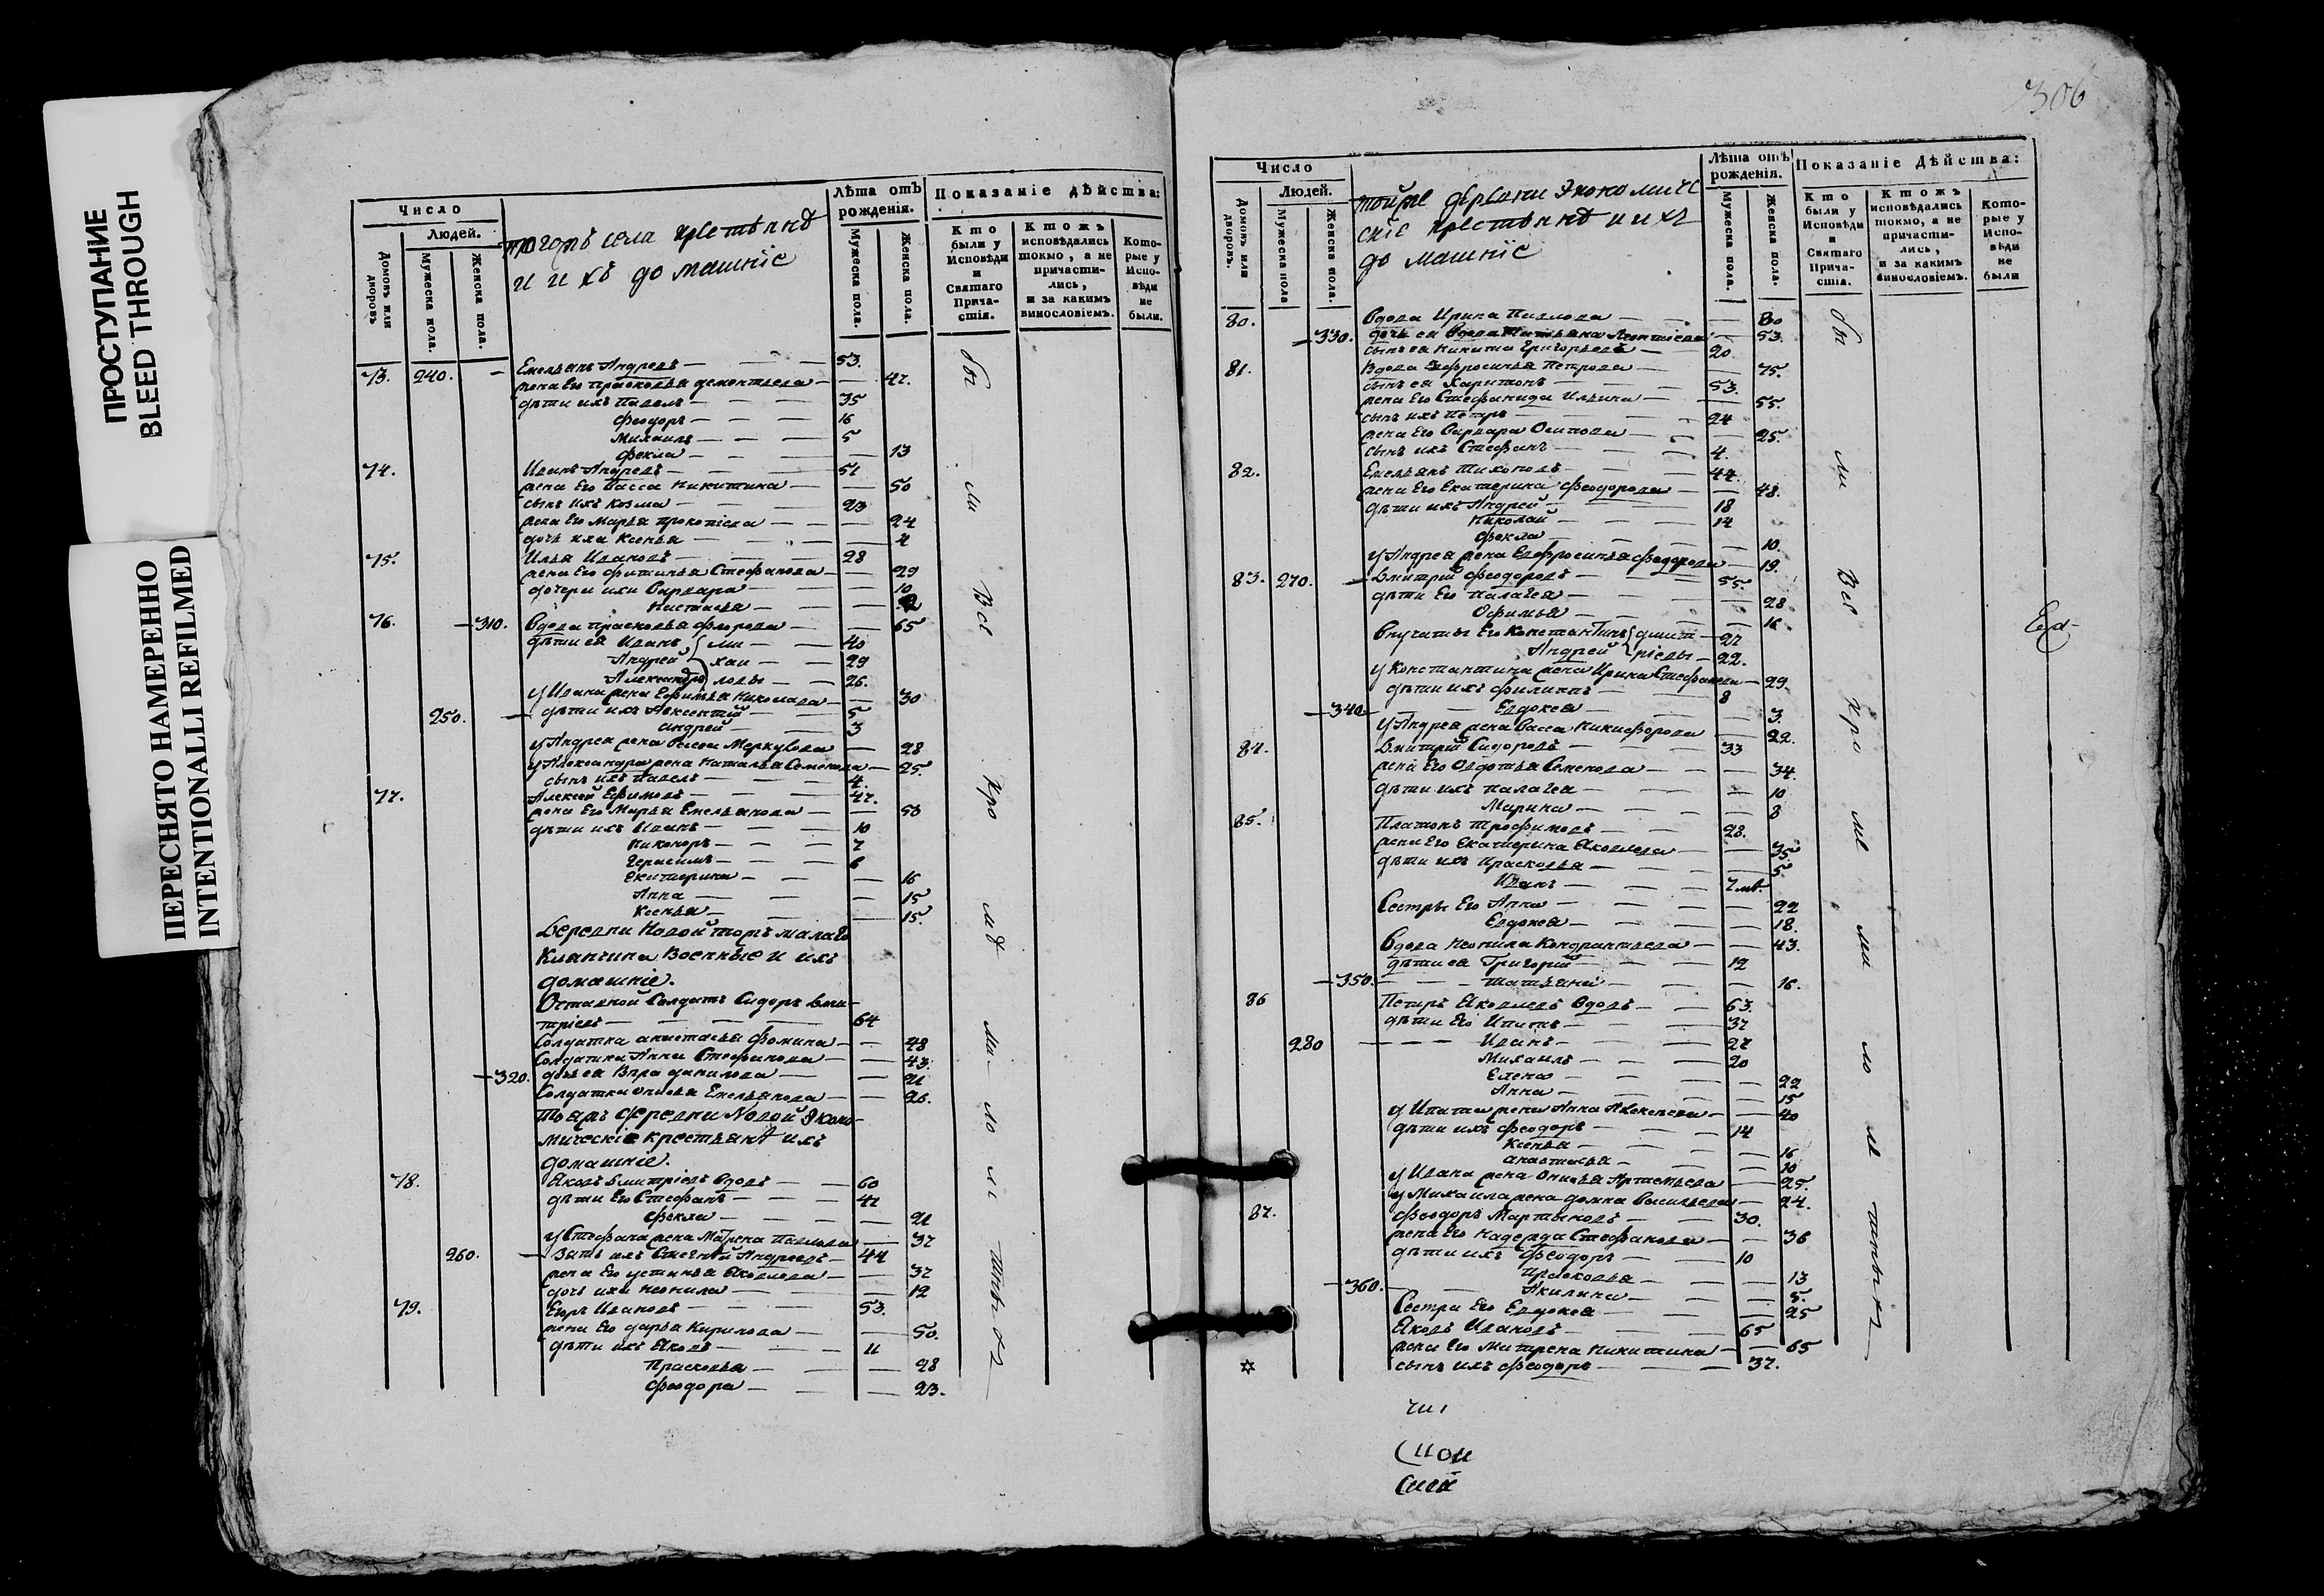 ПРОСТУПАНИЕ
BLEED THROUGH
ПЕРЕСНЯТО НАМЕРЕННО
INTENTIONALLI REFILMED
Число
Людей.
Домовъ или дворовъ
Мужеска пола.
Женска пола.
тогожъ села крестьянѣ
и ихъ домашніе
Лѣта отъ рожденія.
Мужеска пола.
Женска пола.
Показаніе дѣйства:
Кто были у Исповѣди и Святаго Прича-стія.
Ктожъ исповѣдались токмо, а не причасти-лись, и за какимъ винословіемъ.
Кото-рые у Испо-вѣди не были.
73. 240. Емельянъ Андреевъ 53.
жена Его Прасковья Дементьева 47.
дѣти ихъ Павелъ 35
Феодоръ 16
Михаилъ 5
Фекла 13
74. Иванъ Андреевъ 51
жена Его Васса Никитина 50
сынъ ихъ Козма 23
жена Его Марья Прокопіева 24
дочь ихъ Ксенья 4
75. Илья Ивановъ 28
жена Его Фитинья Стефанова 29
дочери ихъ Варвара 10
Настасья
76. 310. Вдова Прасковья Флорова 65
дѣти ея Иванъ ми 40
Андрей хаи 29
Александръ ловы 26.
у Ивана жена Ефимья Николаева 30
250. дѣти ихъ Авксентій 5
Андрей 3
у Андрея жена Меркулова 28
у Александра жена Наталья Семенова 25.
сынъ ихъ Павелъ 4.
77. Алексей Ефимовъ 47.
жена Его Марья Емельянова 50
дѣти ихъ Иванъ 10
Никоноръ 7
Герасимъ 6
Екатерина 16
Анна 15
Ксенья 15.
Деревни Новой тожъ малаго
Клапчина Военные и ихъ
домашніе.
Отставной Солдатъ Сидоръ Дми-
тріевъ 64
Солдатка анастасья Фомина 48
Солдатка Анна Стефанова 43.
320. дочь ея Вѣра данилова 21
Солдатка Онисья Емельянова 26.
Тояжъ деревни Новой Эконо-
мическіе крестьянѣ ихъ
домашніе.
78. Яковъ Дмитріевъ Вдовъ 60
дѣти Его Стефанъ 41
Фекла 21
у Стефана жена Матрена Павлова 37
260. Зять ихъ Андреевъ 44
жена Его устинья Яковлева 37
дочь ихъ Неонила 12
79. Егоръ Ивановъ 53.
жена Его дарья Кирилова 50.
дѣти ихъ Яковъ 11
Прасковья 28
Феодора 23.
бы
ли
Всѣ
кро
мѣ
ма
ло
лѣ
тныхъ
306
Число
Людей.
Домовъ или дворовъ.
Мужеска пола
Женска пола.
тойже деревни Экономиче
скіе крестьянѣ и ихъ
домашніе
Лѣта отъ рожденія.
Мужеска пола.
Женска пола.
Показаніе дѣйства:
Кто были у Исповѣди и Святаго Прича-стія.
Ктожъ исповѣдались токмо, а не причасти-лись, и за какимъ винословіемъ.
Кото-рые у Испо-вѣди не были
80. Вдова Ирина Павлова 80
330. дочь ея Вдова Татьяна Леонтіева 53.
сынъ ея Никита Григорьевъ 20
81. Вдова Евфросинья Петрова 75.
сынъ ея Харитонъ 53.
жена Его Стефанида Ильина 55.
сынъ ихъ Петръ 24
жена Его Варвара Осипова 25.
сынъ ихъ Стефанъ 4.
82. Емельянъ Тихоновъ 44.
жена Его Екатерина Феодорова 48.
дѣти ихъ Андрей 18
Николай 14
Фекла 10.
у Андрея жена Евфросинья Феодорова 19.
83. 270. Дмитрій Феодоровъ 55.
дѣти Его Палагея 28
Офимья 16.
Внучаты Его Константинъ дмит 27
Андрей ріевы 22.
у Константина жена Ирина Стефанова 29.
дѣти ихъ Филиппъ 8
340. Евдокея 3.
у Андрея жена Васса Никифорова 22.
84. Дмитрій Сидоровъ 33
жена Его Овдотья Семенова 34.
дѣти ихъ палагея 10
Марина 8
85. Платонъ Трофимовъ 28.
жена Его Екатерина Яковлева 35.
дѣти ихъ Прасковья 5.
Иванъ 7 мѣ.
Сестры Его Анна 22
Евдокея 18.
Вдова Неонила Кондратьева 43.
дѣти ея Григорій 12
350. Татьяна 16.
86 Петръ Яковлевъ Вдовъ 63.
дѣти Его Ипатъ 37
280 Иванъ 27
Михаилъ 20
Елена 22
Анна 15
у Ипата жена Анна 40
дѣти ихъ Феодоръ 14
Ксенья 16
анастасья 10
у Ивана жена Онисья Артемьева 25.
у Михаила жена домна Васильева 24.
87. Феодоръ Мартыновъ 30.
жена Его Надежда Стефанова 36
дѣти ихъ Феодоръ 10
Прасковья 13
360. Акилина 5.
Сестра Его Евдокея 25
Яковъ Ивановъ 65
жена Его Матрена Никитина 65
сынъ ихъ Феодоръ 37.
бы
ли
Всѣ
кро
мѣ
ма
ло
лѣ
тныхъ